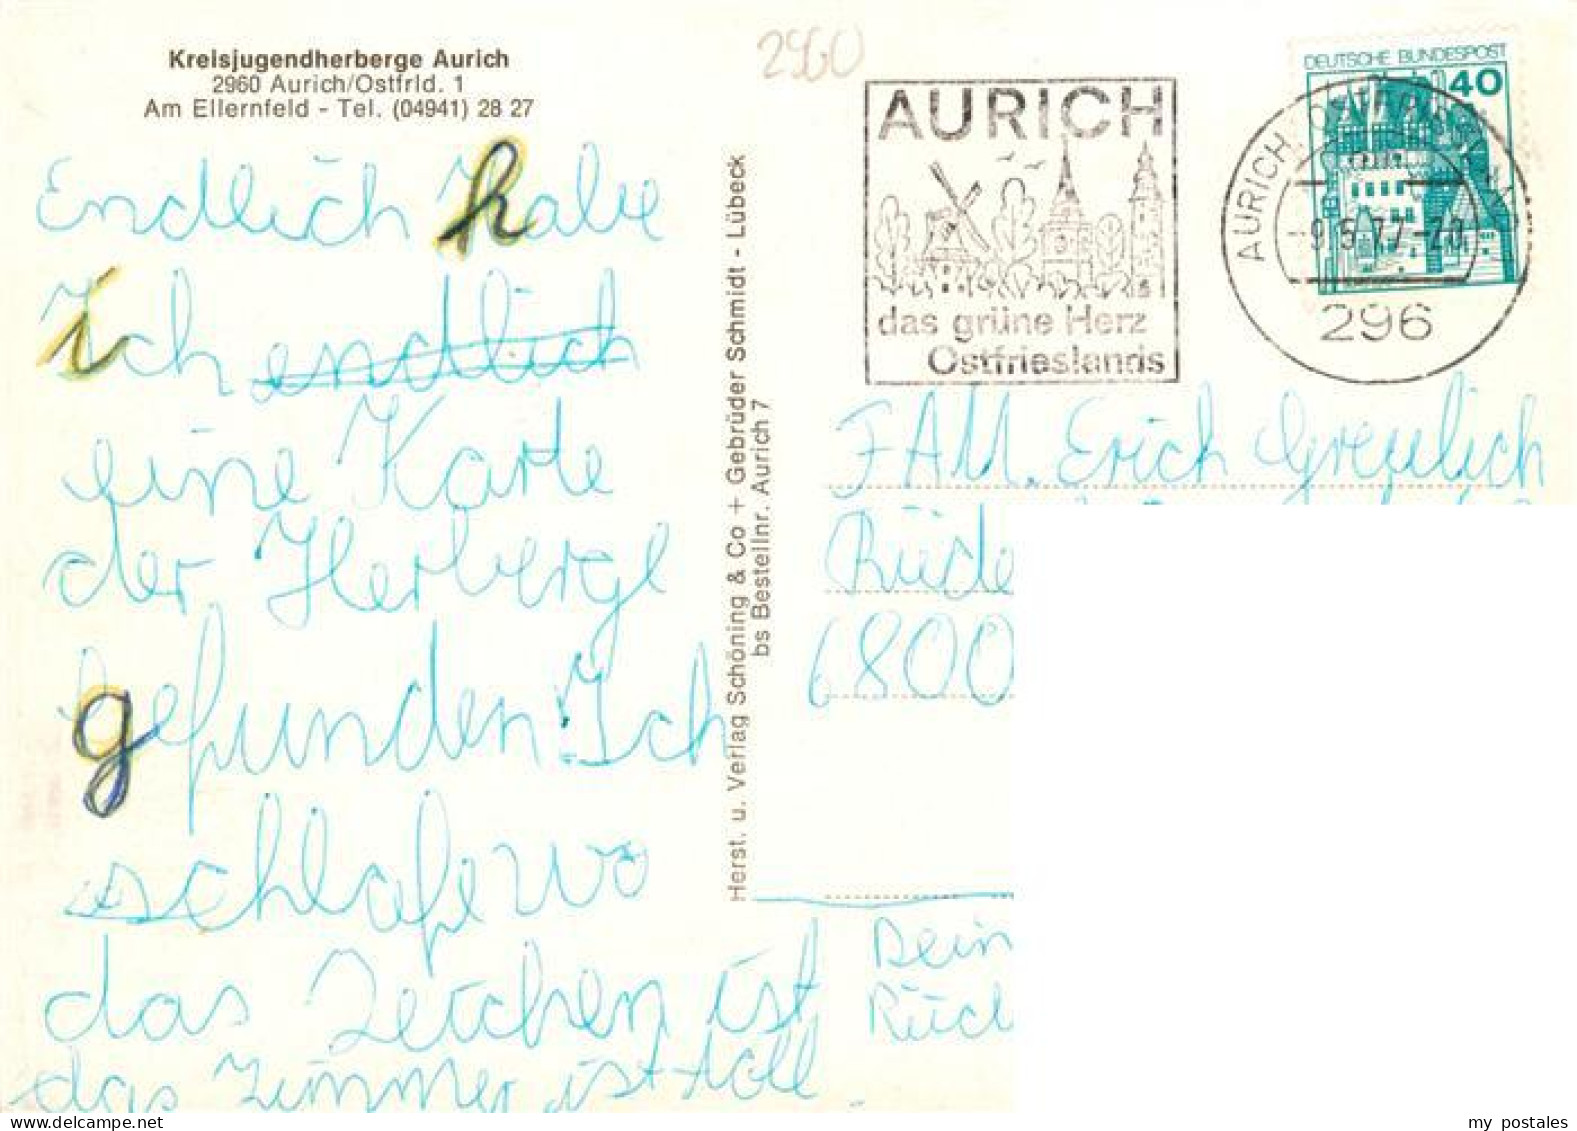 Kreisjugendherberge Aurich
2960 Aurich/Ostfrld. 1
Am Ellernfeld - Tel. (04941) 28 27
Endlich habe
ich endlich
eine Karte
der Herberge
gefunden. Ich
schlafe wo
das Zeichen ist
das Zimmer ist toll
Herst. u. Verlag Schöning & Co + Gebrüder Schmidt - Lübeck
bs Bestellnr. Aurich 7
2960
AURICH
das grüne Herz
Ostfrieslands
DEUTSCHE BUNDESPOST
40
AURICH, OSTFRIESLAND 1
-9.5.77-20
296
FAM. Erich Greulich
Rüde
6800
Dein
Rück
my postales